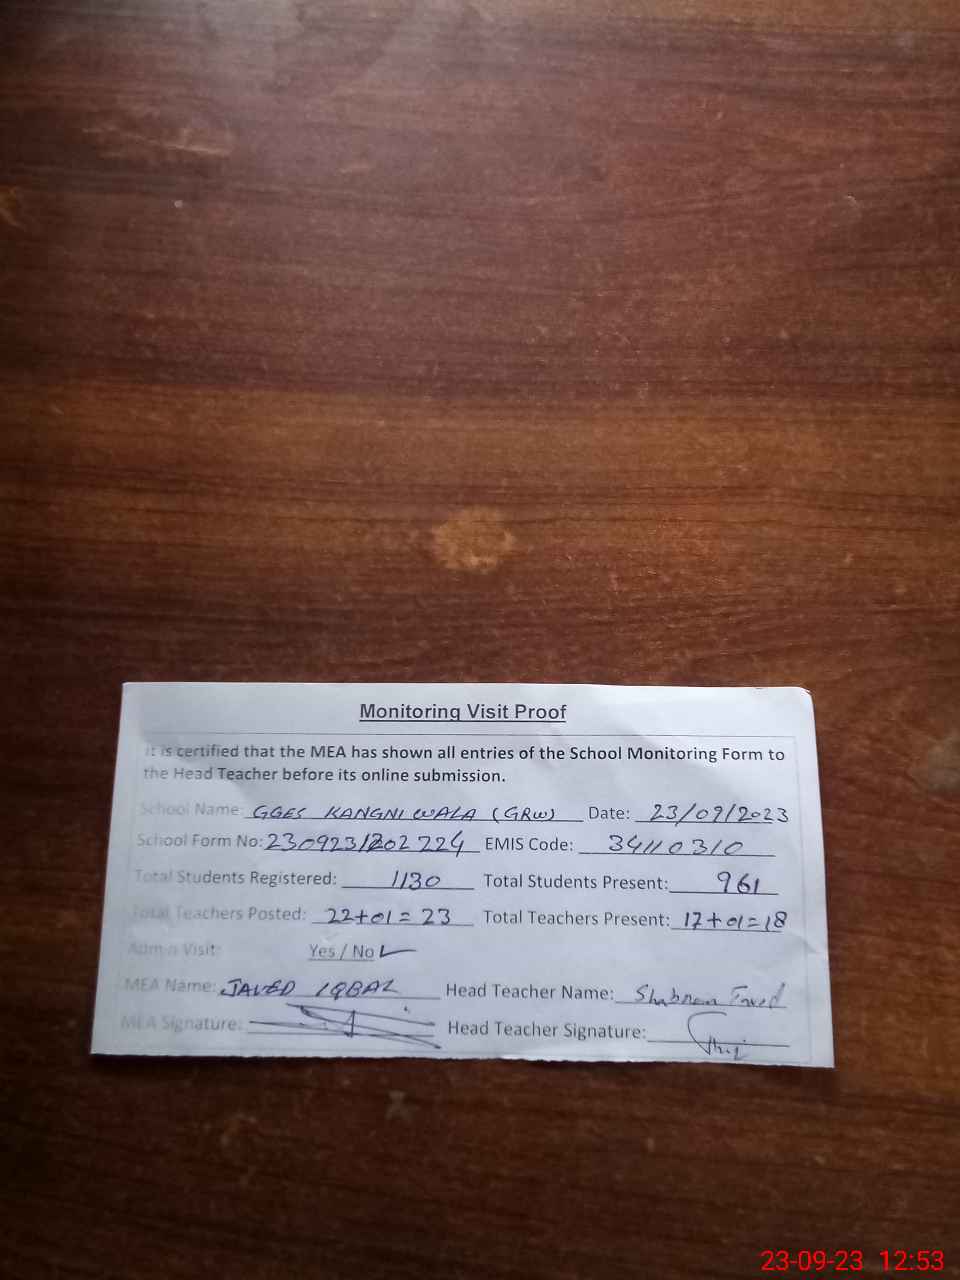 Monitoring Visit Proof
It is certified that the MEA has shown all entries of the School Monitoring Form to
the Head Teacher before its online submission.
School Name: GGES KANGNI WALA (GRW) Date: 23/09/2023
School Form No: 230923/202224 EMIS Code: 34110310
Total Students Registered: 1130 Total Students Present: 961
Total Teachers Posted: 22+01=23 Total Teachers Present: 17+01=18
Admin Visit: Yes / No ✓
MEA Name: JAVED IQBAL Head Teacher Name: Shabnam Javed
MEA Signature: Head Teacher Signature:
23-09-23 12:53